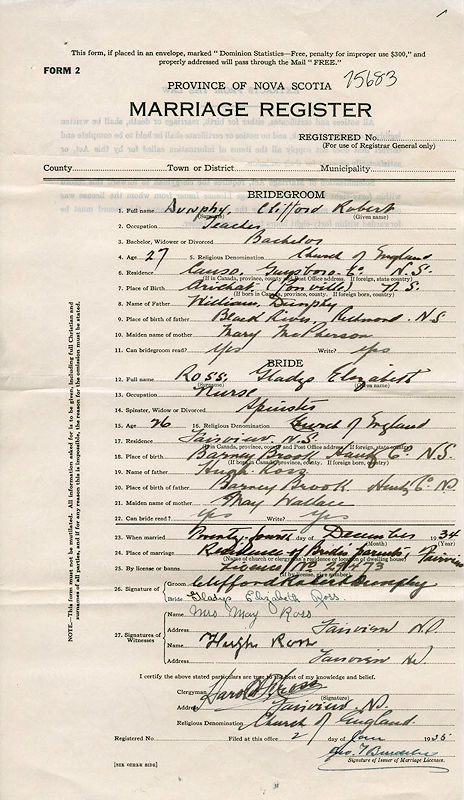 This form, if placed in an envelope, marked "Dominion Statistics—Free, penalty for improper use $300," and
properly addressed will pass through the Mail "FREE."
FORM 2
PROVINCE OF NOVA SCOTIA
75683
MARRIAGE REGISTER
REGISTERED No.
(For use of Registrar General only)
County Town or District Municipality
BRIDEGROOM
1. Full name Dunphy, Clifford Robert
(Surname) (Given name)
2. Occupation Teacher
3. Bachelor, Widower or Divorced Bachelor
4. Age 27 5. Religious Denomination Church of England
6. Residence Canso Guysboro Co. N.S.
(If in Canada, province, county and Post Office address. If foreign, state country)
7. Place of Birth Arichat N.S.
(If born in Canada, province, county. If foreign born, country)
8. Name of Father William Dunphy
9. Place of birth of father Black River, Richmond. N.S
10. Maiden name of mother Mary McPherson
11. Can bridegroom read? yes Write? yes
BRIDE
12. Full name Ross, Gladys Elizabeth
(Surname) (Given name)
13. Occupation Nurse
14. Spinster, Widow or Divorced Spinster
15. Age 26 16. Religious Denomination Church of England
17. Residence Fairview N.S.
(If in Canada, province, county and Post Office address. If foreign, state country)
18. Place of birth Barney Brook Hants Co. N.S.
(If born in Canada, province, county. If foreign born, country)
19. Name of father Hugh Ross
20. Place of birth of father Barney Brook Hants Co. NS
21. Maiden name of mother May Wallace
22. Can bride read? yes Write? yes
23. When married Twenty-fourth day of December 1934
(Month) (Year)
24. Place of marriage Residence of Brides parents, Fairview
(Name of church or clergyman's residence or location of dwelling house)
25. By license or banns License No.
(If by license, give number)
26. Signature of Groom Clifford Dunphy
Bride Gladys Elizabeth Ross.
27. Signatures of Witnesses
Name Mrs May Ross
Address Fairview N.S.
Name Hugh Ross
Address Fairview NS
I certify the above stated particulars are true to the best of my knowledge and belief.
Clergyman Harold
(Signature)
Address Fairview. N.S.
Religious Denomination Church of England
Registered No. Filed at this office 2 day of Jan 1935
Geo. T.
Signature of Issuer of Marriage Licenses.
[SEE OTHER SIDE]
NOTE.—This form must not be mutilated. All information asked for is to be given, including full Christian and
surnames of all parties, and if for any reason this is impossible, the reason for the omission must be stated.